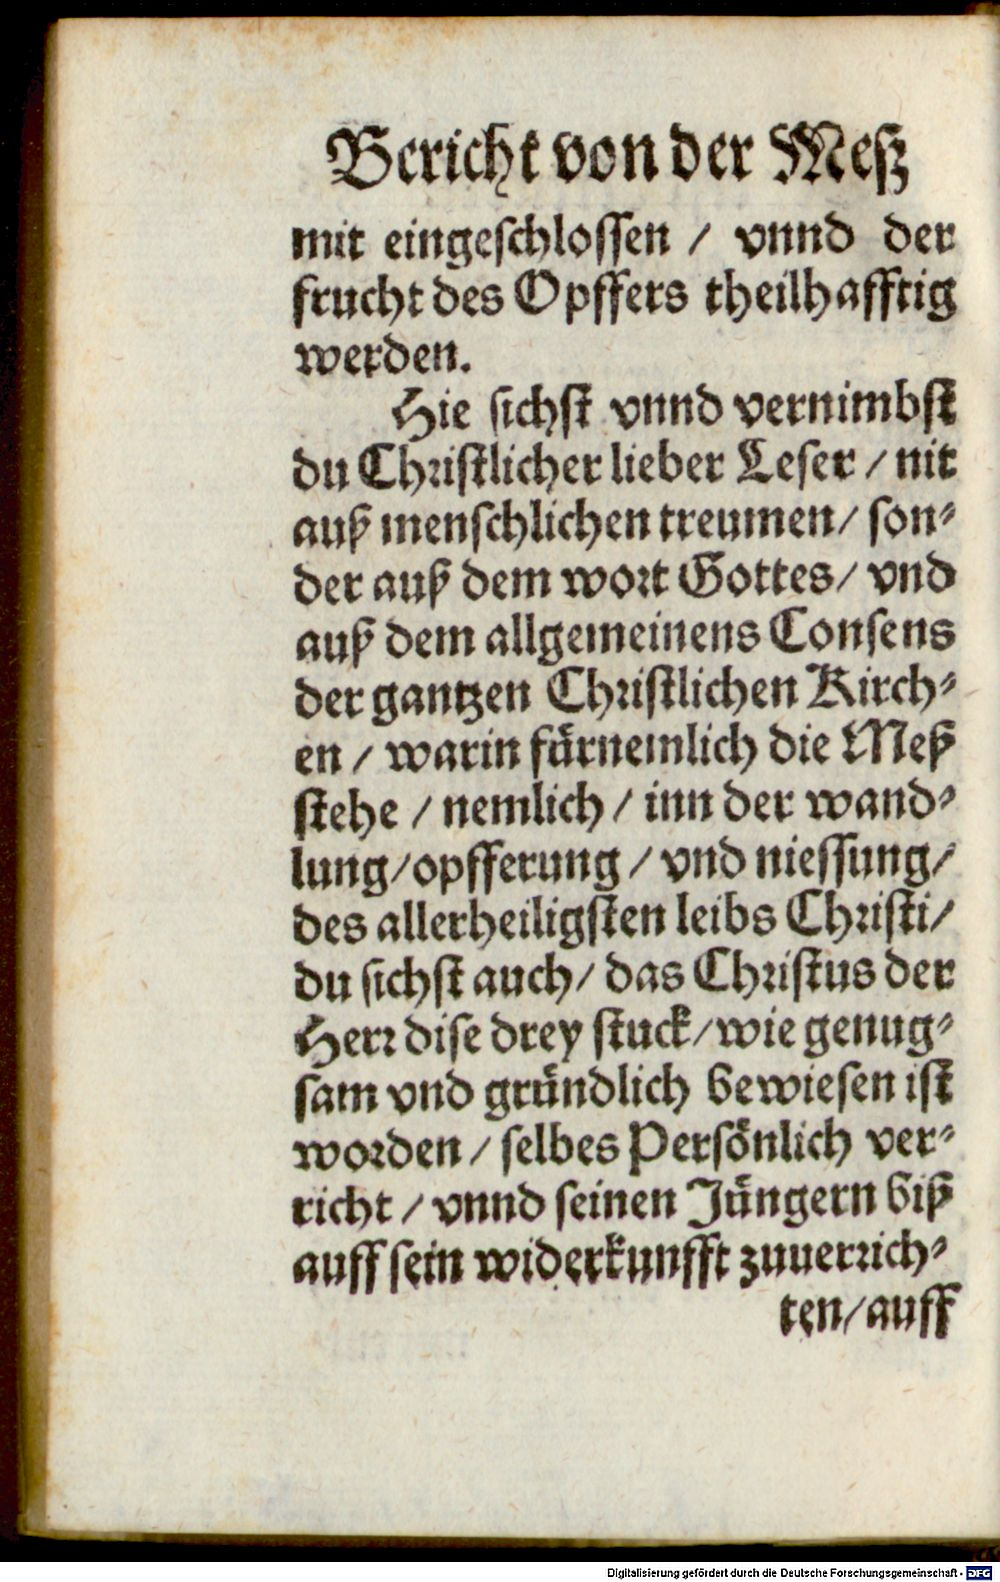 Bericht von der Meß
mit eingeschlossen / vnnd der
frucht des Opffers theilhafftig
werden.
Hie sichst vnnd vernimbst
du Christlicher lieber Leser / nit
auß menschlichen treumen / son⸗
der auß dem wort Gottes / vnd
auß dem allgemeinens Consens
der gantzen Christlichen Kirch⸗
en / warin fürnemlich die Meß
stehe / nemlich / inn der wand⸗
lung / opfferung / vnd niessung /
des allerheiligsten leibs Christi /
du sichst auch / das Christus der
Herr dise drey stuck / wie genug⸗
sam vnd gründlich bewiesen ist
worden / selbes Persönlich ver⸗
richt / vnnd seinen Jüngern biß
auff sein widerkunfft zuuerrich⸗
ten / auff
Digitalisierung gefördert durch die Deutsche Forschungsgemeinschaft - DFG